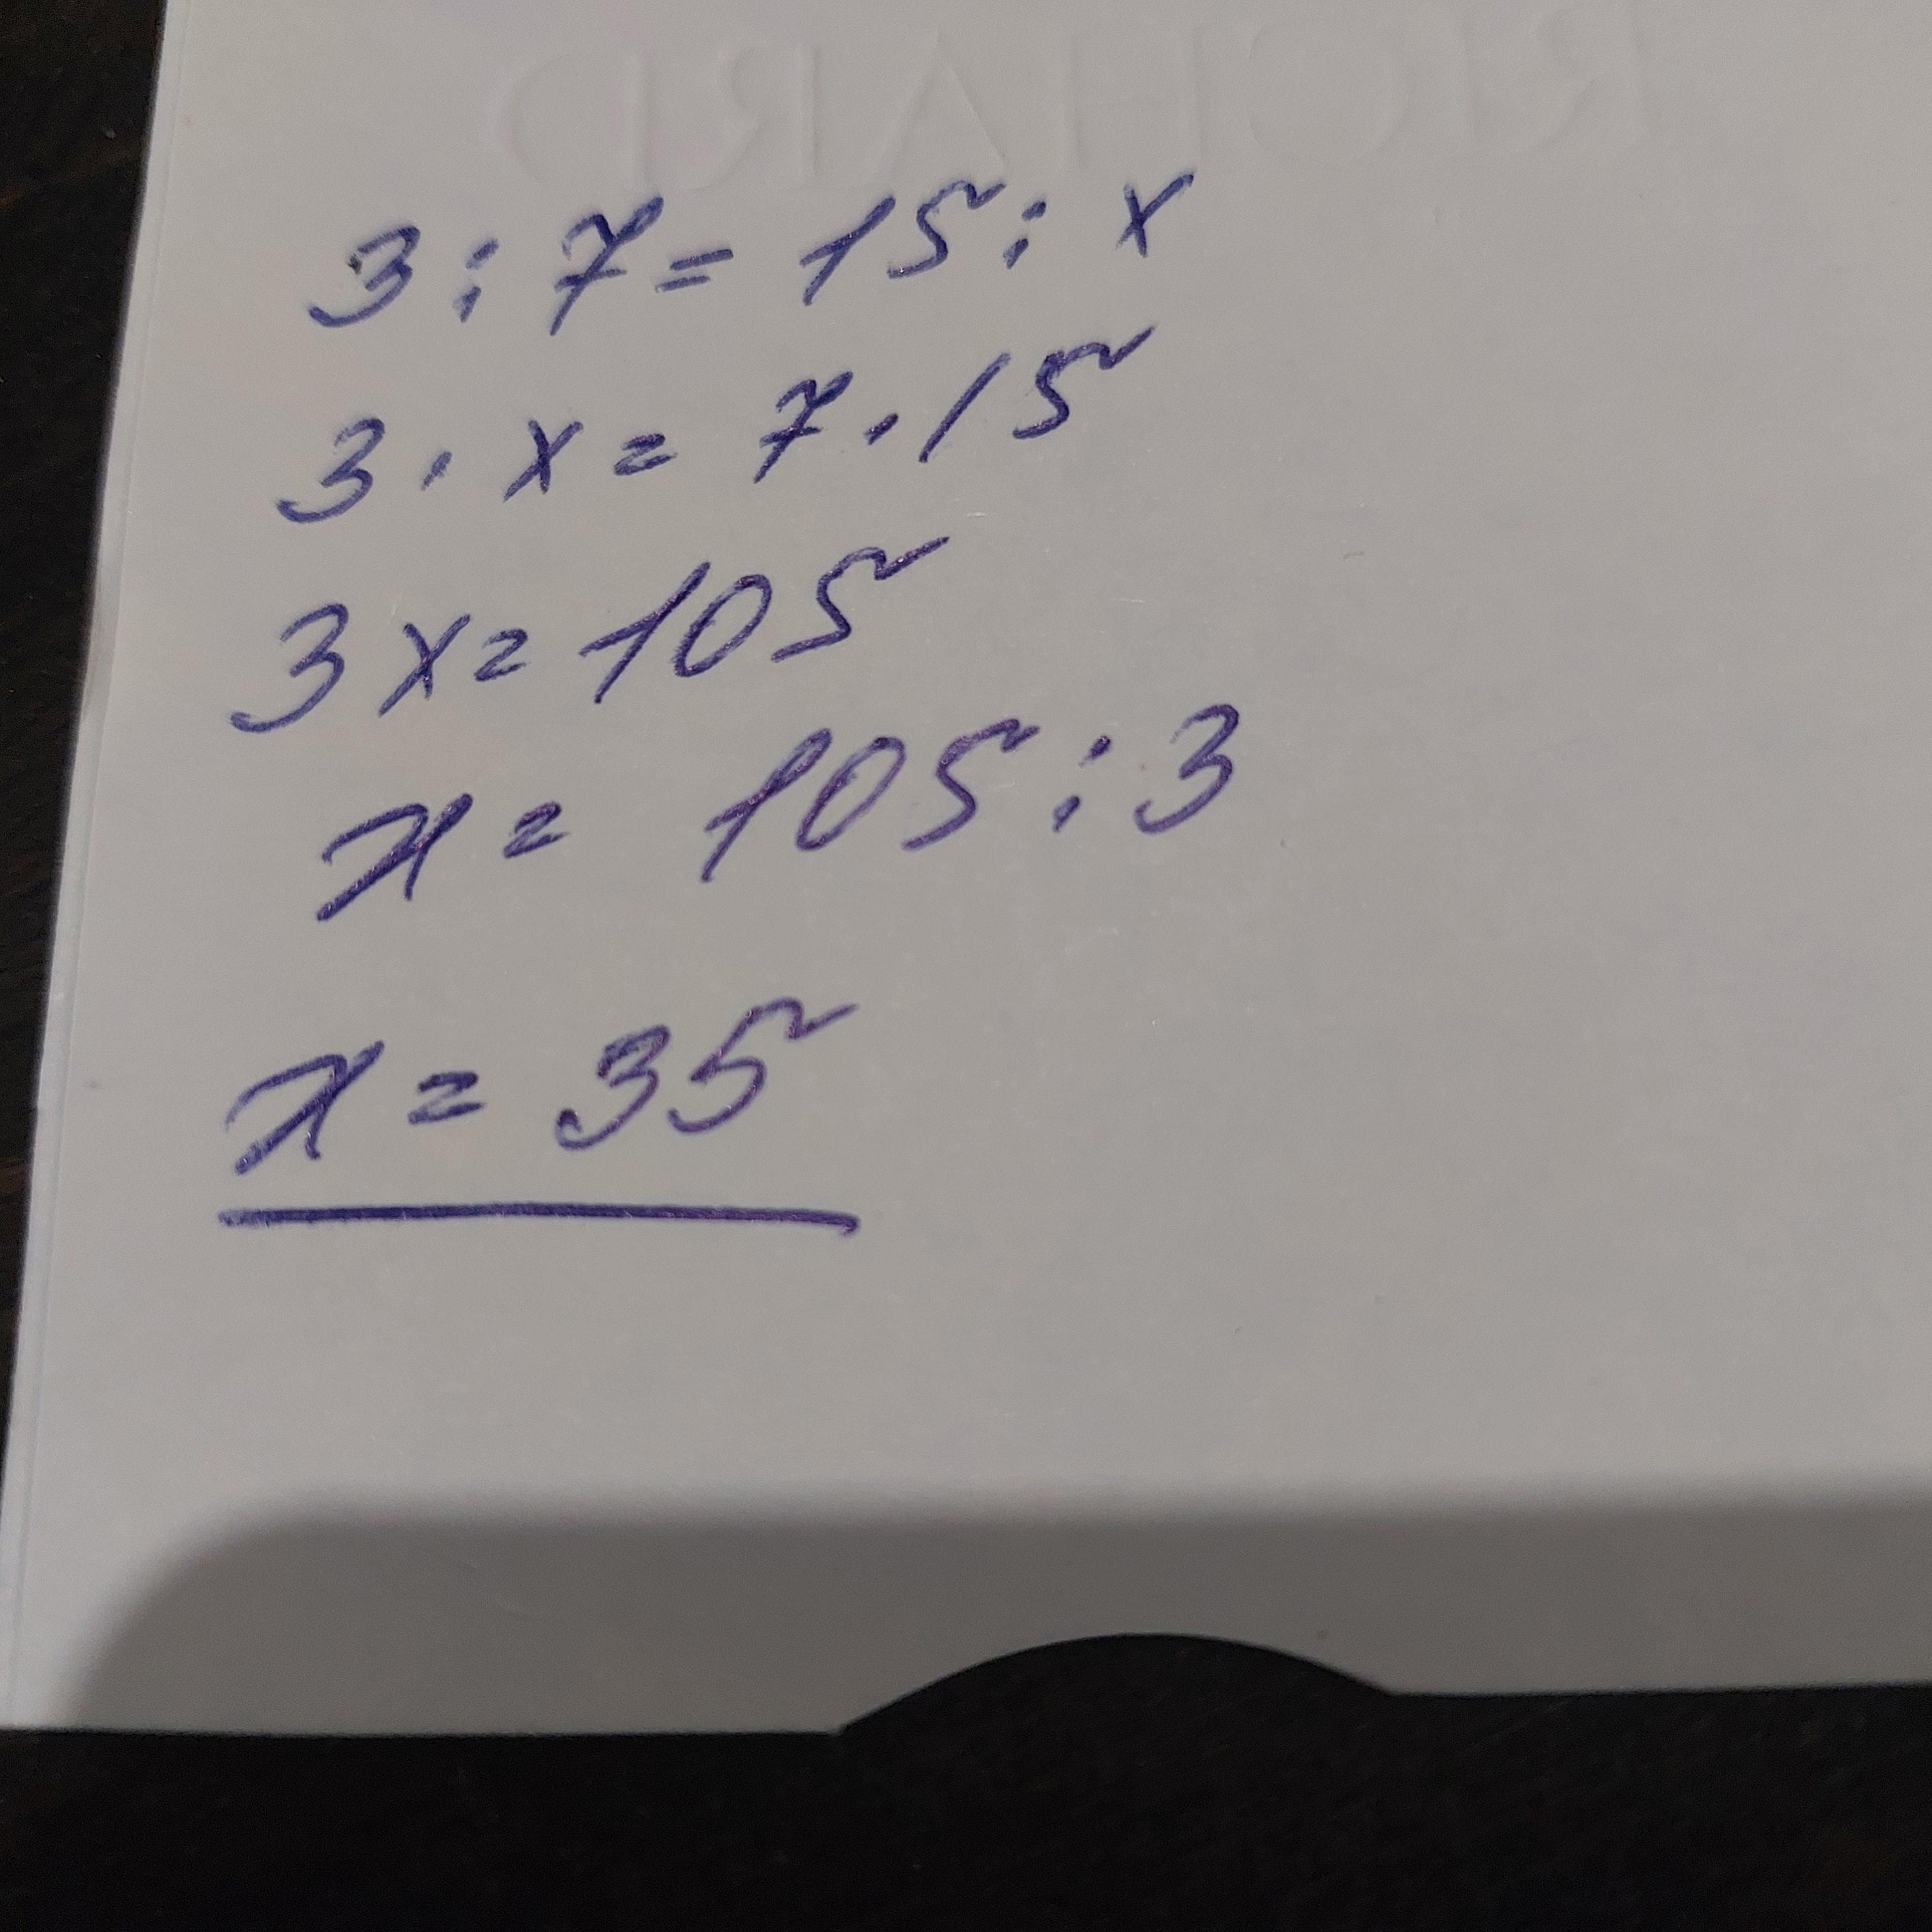 3 : 7 = 15 : x
3 · x = 7 · 15
3x = 105
x = 105 : 3
x = 35